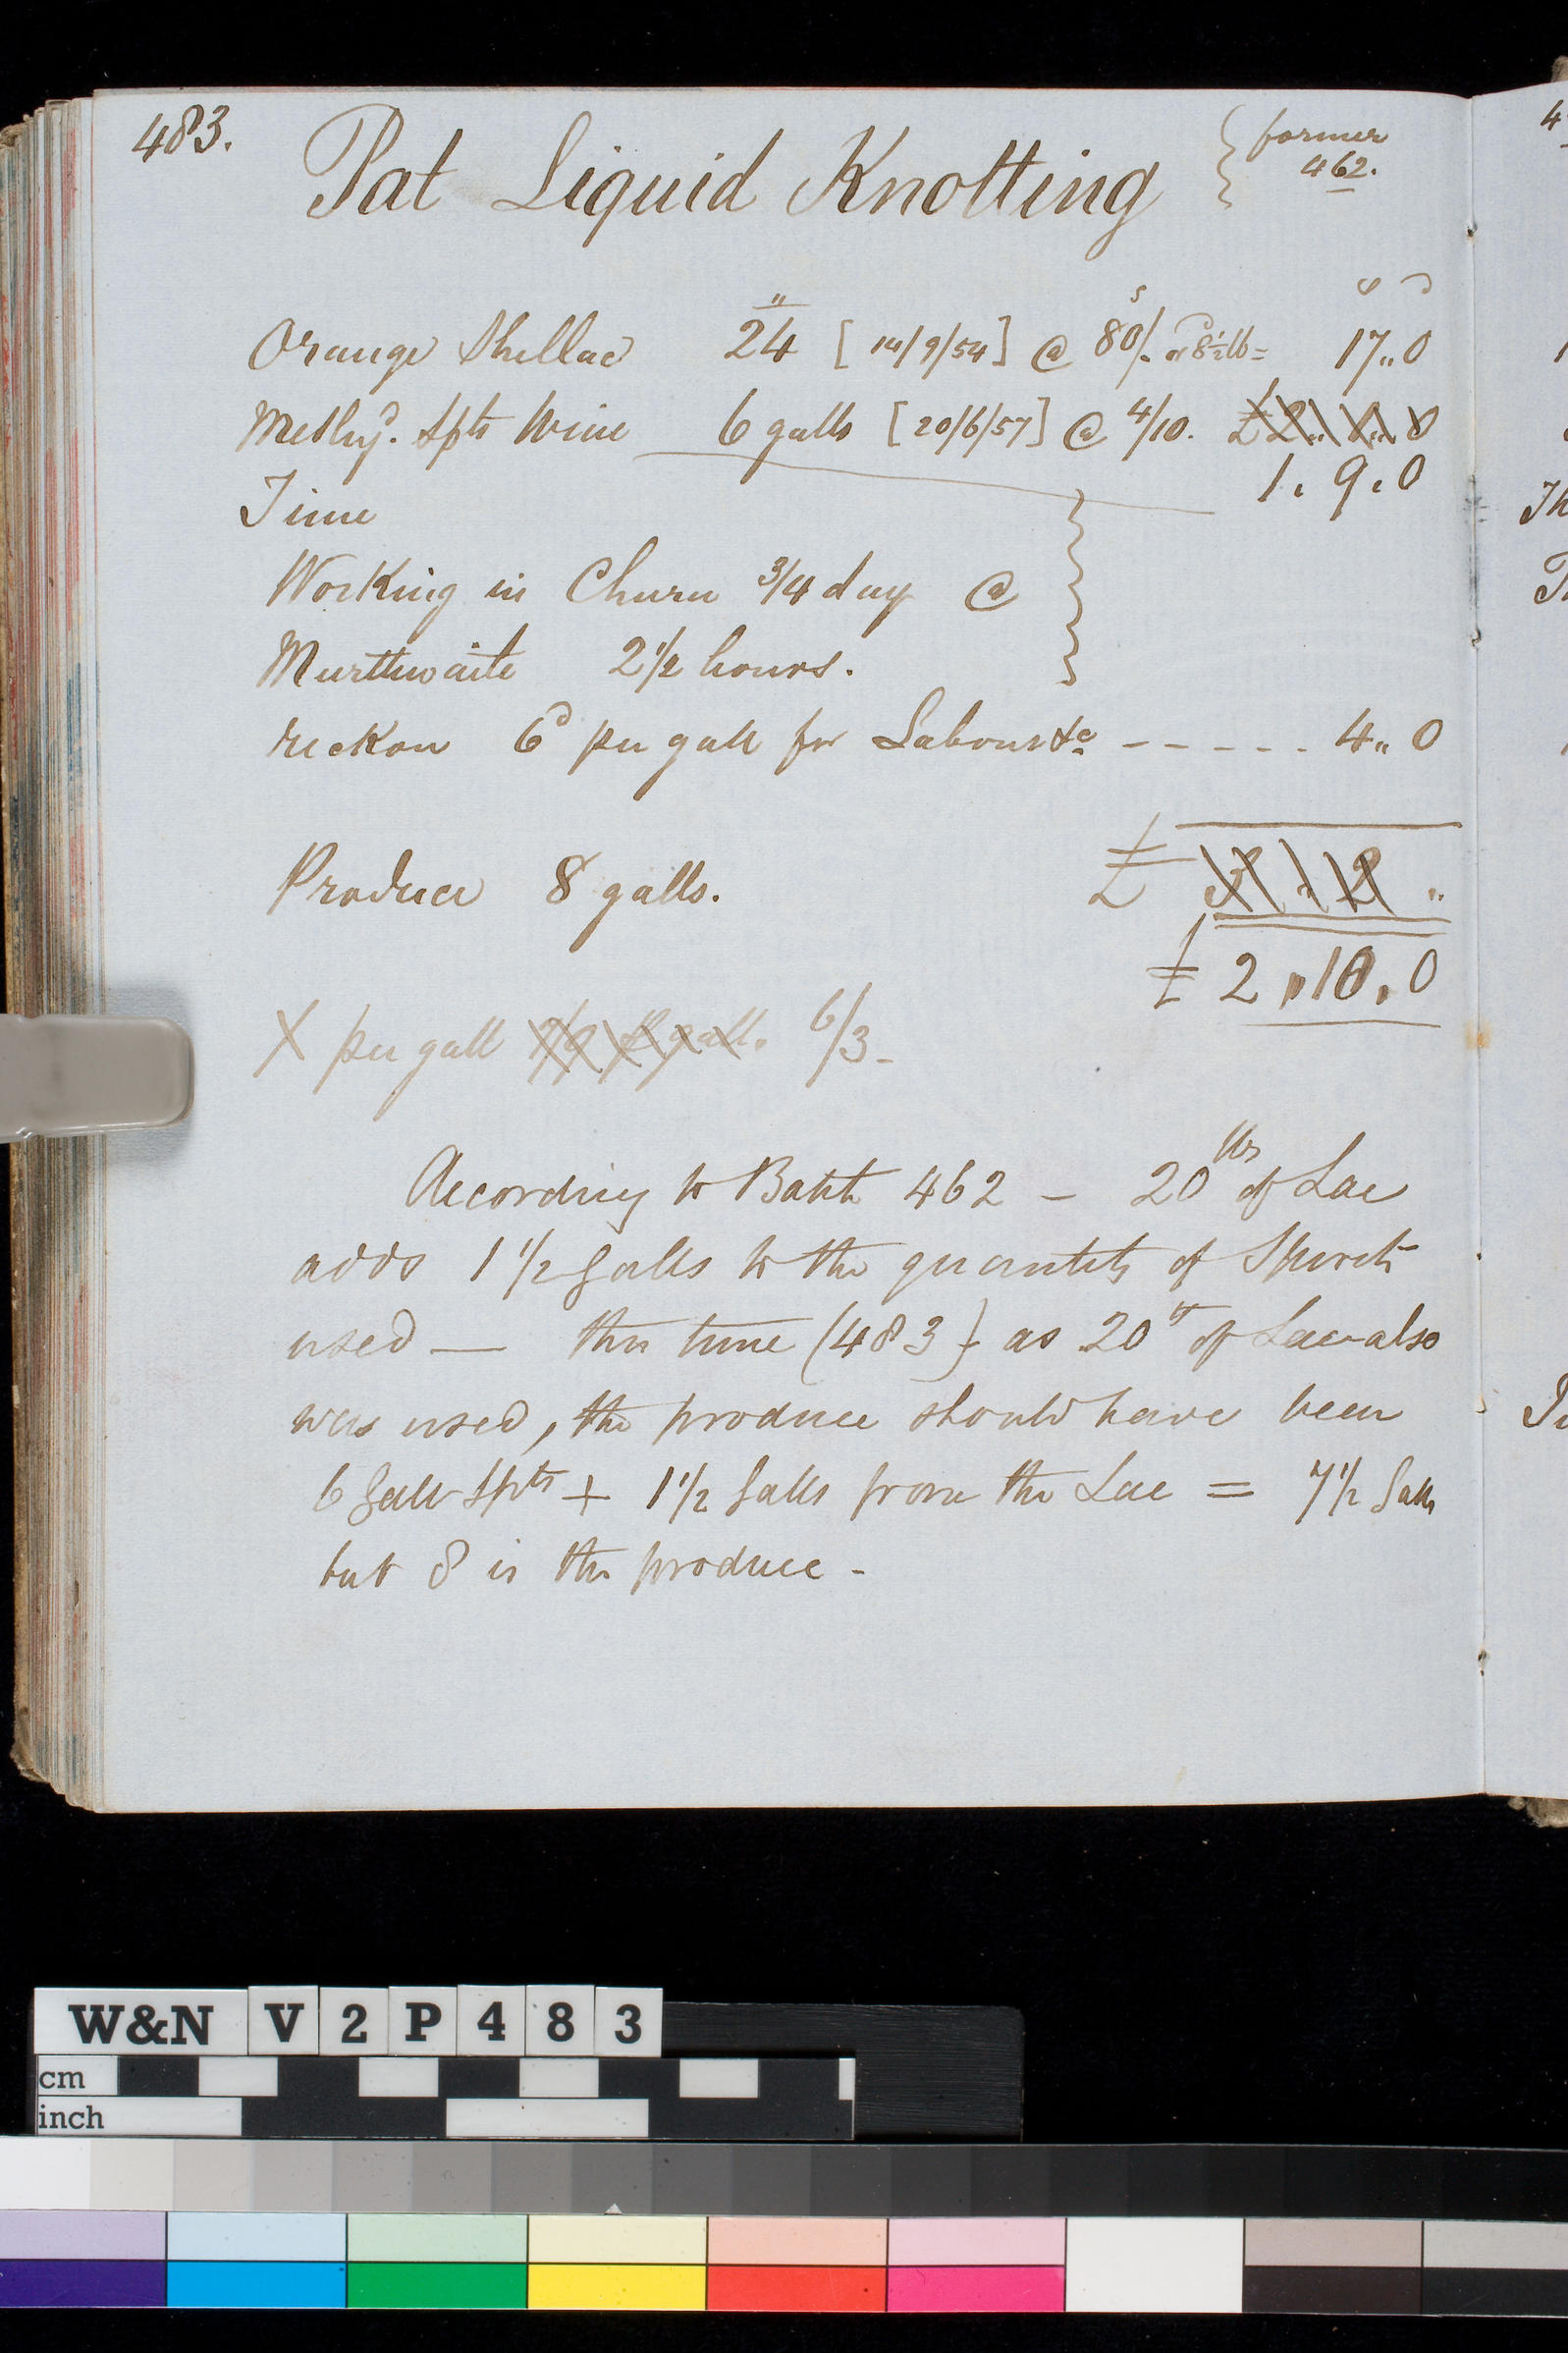 483.
Pat Liquid Knotting { former
462.
Orange Shellac 24 [14/9/54] @ 80/- or 8½ lb = 17"0
Methyd. Spts Wine 6 galls [20/6/57] @ 4/10. £2
1. 9. 0
Time
Working in Churn 3/4 day @
Murthwaite 2 1/2 hours.
reckon 6d per gall for Labour &c ------ 4"0
Produce 8 galls. £
£ 2"10.0
X per gall 6/3-
According to Batch 462 – 20 lbs of Lac
adds 1 1/2 Galls to the quantity of Spirits
used — this time (483) as 20 lb of Lac also
was used, the produce should have been
6 Galls Spts + 1 1/2 Galls from the Lac = 7 1/2 Galls
but 8 is the produce -
4
Th
W&N V 2 P 4 8 3
cm
inch